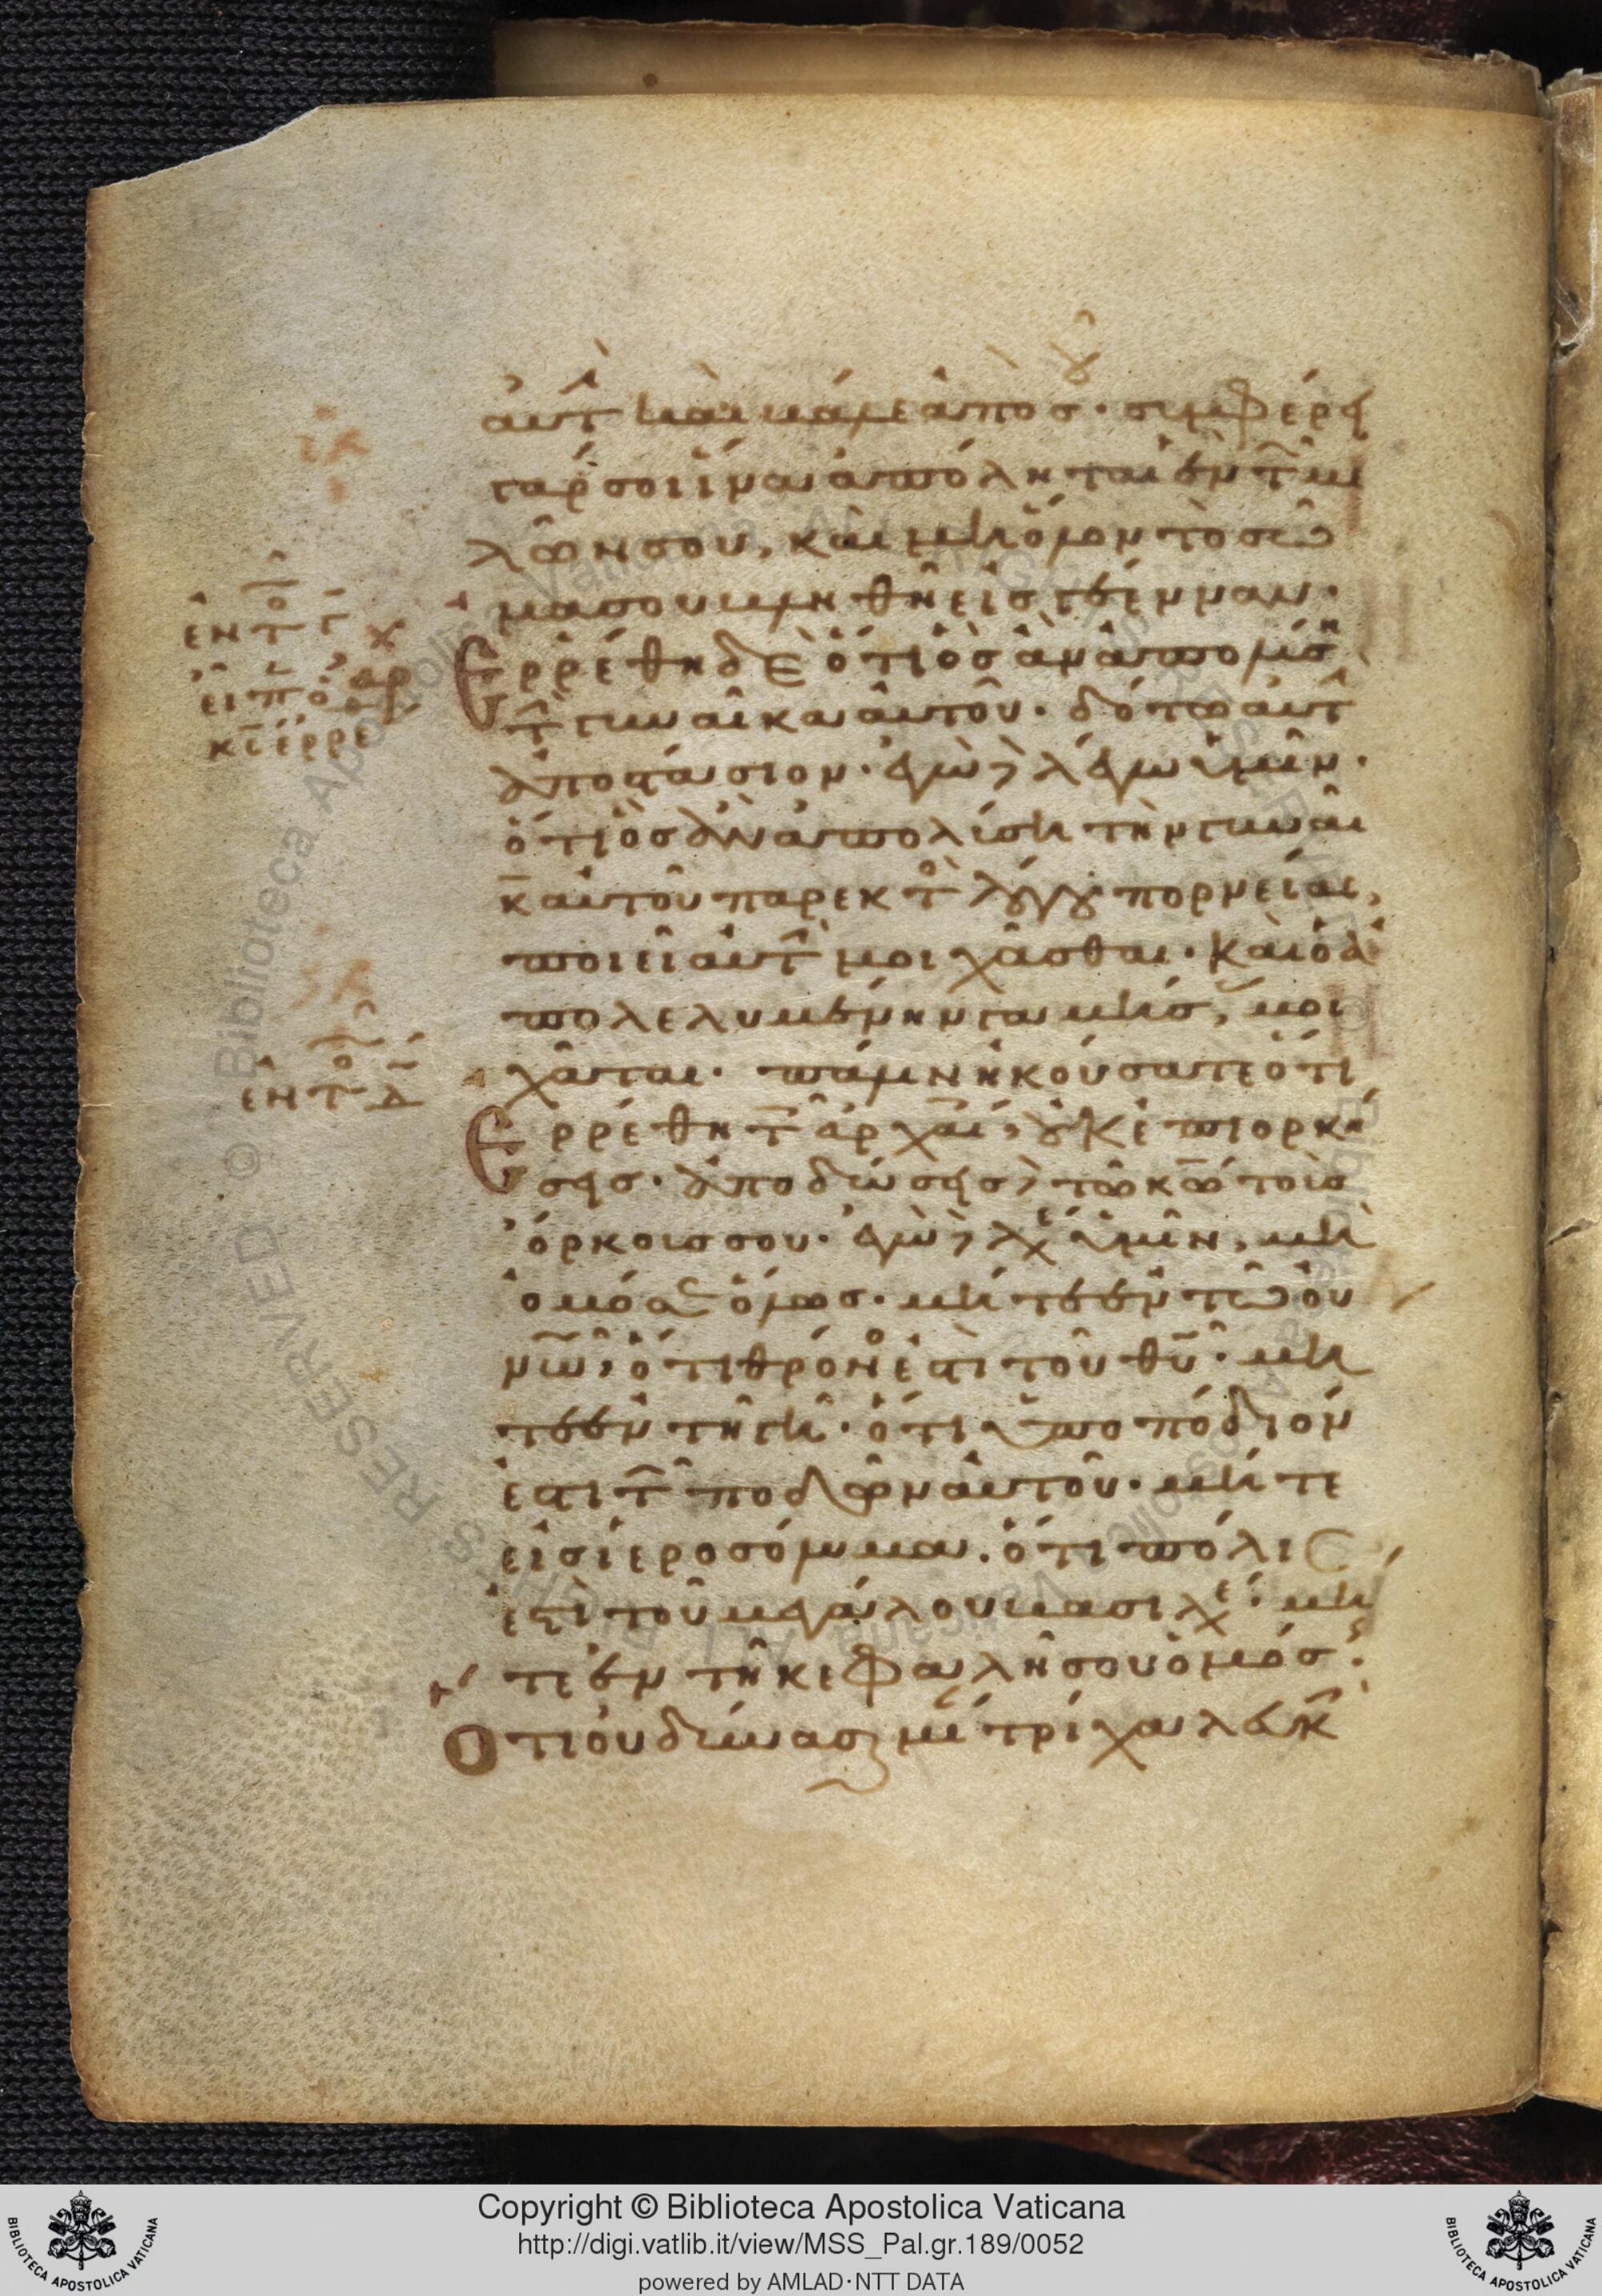 αὐτ καὶ βάλε ἀπὸ σοῦ· συμφέρει
γάρ σοι ἵνα ἀπόληται ἓν τ με
λῶν σου, καὶ μὴ ὅλον τὸ σῶ
μα σου βληθῆ εἰς γέενναν·
Ἐρρέθη δὲ ὅτι ὃς ἂν ἀπολύση
τ γυναῖκα αὐτοῦ· δότω αὐτ
ἀποστάσιον· ἐγὼ δὲ λέγω ὑμῖν·
ὅτι ὃς ἂν ἀπολύση τὴν γυναῖ
κα αὐτοῦ παρεκτὸς λόγου πορνείας,
ποιεῖ αὐτ μοιχᾶσθαι· καὶ ὁ ἀ
πολελυμένην γαμήσ, μοι
χᾶται· πάλιν ἠκούσατε ὅτι
Ἐρρέθη τ ἀρχαί, οὐκ ἐπιορκή
σεις· ἀποδώσεις δὲ τῶ κω τοὺς
ὅρκους σου· ἐγὼ δὲ λέγω ὑμῖν, μὴ
ὀμόσαι ὅλως· μήτε ἐν τῶ οὐ
νῶ, ὅτι θρόνος ἐστὶ τοῦ θυ· μή
τε ἐν τῆ γῆ· ὅτι ὑποπόδιόν
ἐστι τ ποδῶν αὐτοῦ· μήτε
εἰς ἱεροσόλυμα· ὅτι πόλις
ἐστὶ τοῦ μεγάλου βασιλέ· μή
τε ἐν τῆ κεφαλῆ σου ὀμόσ·
Ὅτι οὐ δύνασαι μί τρίχα λευκ
ἐν τ
εἶπ
κ ἐρρέ
ἐν τ
Copyright © Biblioteca Apostolica Vaticana
http://digi.vatlib.it/view/MSS_Pal.gr.189/0052
powered by AMLAD·NTT DATA
BIBLIOTECA APOSTOLICA VATICANA
BIBLIOTECA APOSTOLICA VATICANA